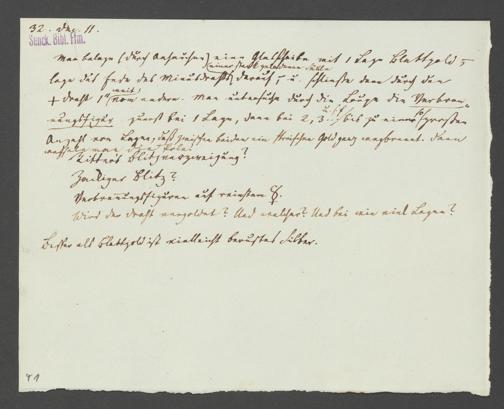 32. Dec. 11.
Senck. Bibl. Ffm.
Man belege (durch Anhauchen) eine Glasscheibe mit 1 Lage Blattgold,
(einer stark geladenen Säule)
lege das Ende des Minusdrahts darauf, u. schliesse dann durch den
+ Draht 1''' weit vom andern. Man untersuche durch die Länge die Verbren-
nungsfigur zuerst bei 1 Lage, dann bei 2, 3 u.s.f. bis zu einer grossen
Anzahl von Lagen, daß zwischen beiden ein Streifen Gold ganz wegbrennt. Dann
Ritters Blitzverzweigung?
Zackiger Blitz?
Verbrennungsfiguren auf reinsten ☿.
Wird der Draht vergoldet? Und welcher? Und bei wie viel Lagen?
Besser als Blattgold ist vielleicht berusstes Silber.
41